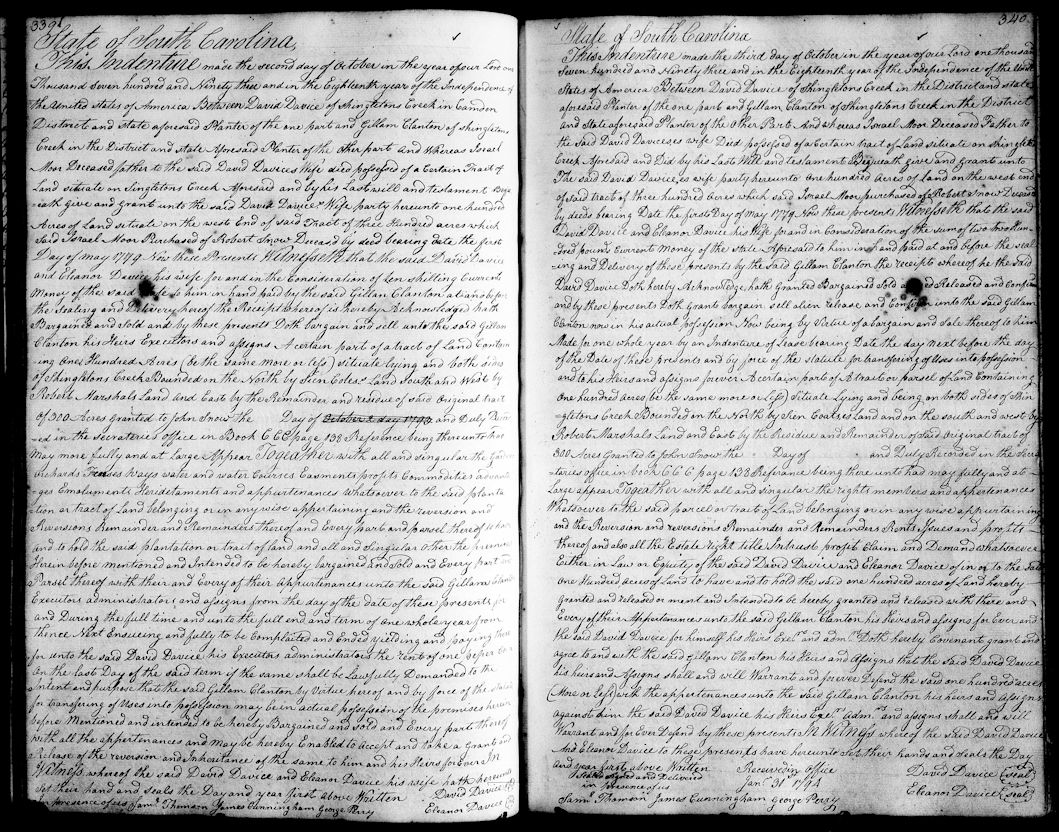 339
State of South Carolina,
This Indenture made the second day of October in the year of our Lord one
Thousand Seven hundred and Ninety three and in the Eighteenth year of the Independence of
the United States of America Between David Davice of Shingletons Creek in Camden
District and State aforesaid Planter of the one part and Gillam Clanton of Shingletons
Creek in the District and State Aforesaid Planter of the other part and Whereas Israel
Moor Deceased father to the said David Davices Wife died possessed of a Certain Trait of
Land situate on Singletons Creek Aforesaid and by his Last will and testament Bequ
eath give and grant unto the said David Davice Wife party hereunto one hundred
Acres of Land situate on the west End of said Tract of three Hundred acres which
Said Israel Moor Purchased of Robert Snow Deceased by deed bearing date the first
Day of may 1779 Now these Presents Witnesseth that the said David Davice
and Eleanor Davice his wife for and in the Consideration of ten shilling Current
Money of the said State to him in hand paid by the said Gillam Clanton at and before
the Sealing and Delivery hereof the Receipt whereof is hereby Acknowledged hath
Bargained and Sold and by these present Doth bargain and sell unto the said Gillam
Clanton his Heirs Executors and assigns A certain part of a tract of Land Contain
ing One Hundred Acres (be the same more or less) situate lying and both sides
of Shingletons Creek Bounded on the North by Land South and West by
Robert Marshals Land and East by the Remainder and residue of said Original tract
Of 300 Acres granted to John Snow the Day of October 2 day 1793 and Duly Recor
-ed in the secretaries office in Book CCC page 138 Reference being thereunto had
may more fully and at Large Appear Together with all and singular the Garden
Orchards Trees Ways water and water Courses Easments profits Commodities advanta
-ges Emoluments Hereditaments and appurtenances Whatsoever to the said planta
tion or tract of Land belonging or in any wise appertaining and the reversion and
Reversions Remainder and Remainders thereof and Every part and parcel thereof to have
and to hold the said plantation or trait of land and all and Singular other the premises
Herein before mentioned and Intended to be hereby bargained and sold and Every part and
Parsel thereof with their and Every of their appurtenances unto the said Gillam Clanton
Executors administrators and assigns from the day of the date of these presents for
and During the full time and unto the full end and term of one whole year from
thence Next Ensueing and fully to be Complated and Ended yielding and paying therefor
for unto the said David Davice his Executors administrators the rent of one peper Corn
On the last Day of the said term if the same shall be Lawfully Demanded to the
Intent and purpose that the said Gillam Clanton by Virtue hereof and by force of the statute
for transfering of Uses into possession may be in actual possession of the premises herein
before Mentioned and intended to be hereby Bargained and sold and Every part thereof
with all the appertenances and may be hereby Enabled to Accept and take a grant and
Release of the reversion and Inheritance of the same to him and his Heirs for Ever In
Witness whereof the said David Davice and Eleanor Davice his wife hath hereunto
Set their hand and seals the Day and year first above Written David Davice
in presence of us Saml. Thomson James Cunningham George Perry Eleanor Davice
340
State of South Carolina
This Indenture made the third Day of October in the year of our Lord one thousand
Seven hundred and Ninety three and in the Eighteenth year of the Independence of the United
States of America Between David Davice of Shingletons Creek in the District and state
aforesaid Planter of the one part and Gillam Clanton of Shingletons Creek in the District
and State aforesaid Planter of the Other Part And whereas Israel Moor Deceased Father to
the said David Davices wife Died possessed of a Certain trait of Land situate on Shingletons
Creek Aforesaid and Did by his Last Will and testament Bequeath give and Grant unto
The said David Davice,es wife party hereunto One hundred Acres of Land on the west end
of said tract of three hundred acres which said Israel Moor purchased of Robert Snow Deceased
by deeds bearing Date the first Day of May 1779 Now these presents Witnesseth that the said
David Davice and Eleanor Davice his Wife for and in Consideration of the sum of two hun
dred pound Current Money of the State Aforesaid to him in hand paid at and before the seal
ing and Delivery of these presents by the said Gillam Clanton the receipts whereof he the Said
David Davice Doth hereby Acknowledge, hath Granted Bargained Sold Released and Confirmed
and by these presents Doth Grants bargain sell alien release, and Confirm unto the said Gillam
Clanton now in his actual possession Now being by Vertue of a bargain and sale thereof to him
Made for one whole year by an Indenture of Lease bearing Date the day next before the day
of the Date of these presents and by force of the statute for transfering of Uses into possession
and to his Heirs and assigns forever A certain part of A trait or parsel of Land Containing
One hundred Acres be the same more or Less) Situate Lying and being on both sides of Shin
-gletons Creek Bounded on the North by Land and on the south and west by
Robert Marshals Land and East by the Residue and Remainder of Said Original tract of
300 Acres Granted to John Snow the Day of and Duly Recorded in the Secre
taries office in Book CCC page 138 Referance being there unto had may fully and at
Large appear Togeather with all and singular the rights members and appertenances
Whatsoever to the said parcel or trait of Land belonging or in any wise appertaining
and the Reversion and reversions Remainder and Remainders Rents Issues and profits
thereof and also all the Estate right title Intrust profit Claim and Demand whatsoever
Either in Law or Equity of the said David Davice and Eleanor Davice of in or to the Said
One Hundred acres of Land to have and to hold the said one hundred acres of Land hereby
granted and released or ment and Intended to be hereby granted and released with there and
Every of their Appertenances unto the said Gillam Clanton his Heirs and assigns for Ever and
the said David Davice for himself his Heirs Exers. and adms. Doth hereby Covenant grant and
agree to and with the said Gillam Clanton his Heirs and Assigns that the said David Davice
his heirs and Assigns shall and will Warrant and forever Defend the said one hundred acres
(More or Less) with the appertenances unto the said Gillam Clanton his heirs and assigns
against him the said David Davice his Heirs Exers. Adms. and assigns shall and will
Warrant and for Ever Defend by these presents In Witness whereof the said David Davice
And Eleanor Davice to these presents have hereunto Set their hands and seals the Day
and year first above Written Received in Office David Davice (seal)
Sealed Signed and Delivered
in presence of us Jan. 31 1794 Eleanor Davice (seal)
Saml. Thomson James Cunningham George Perry